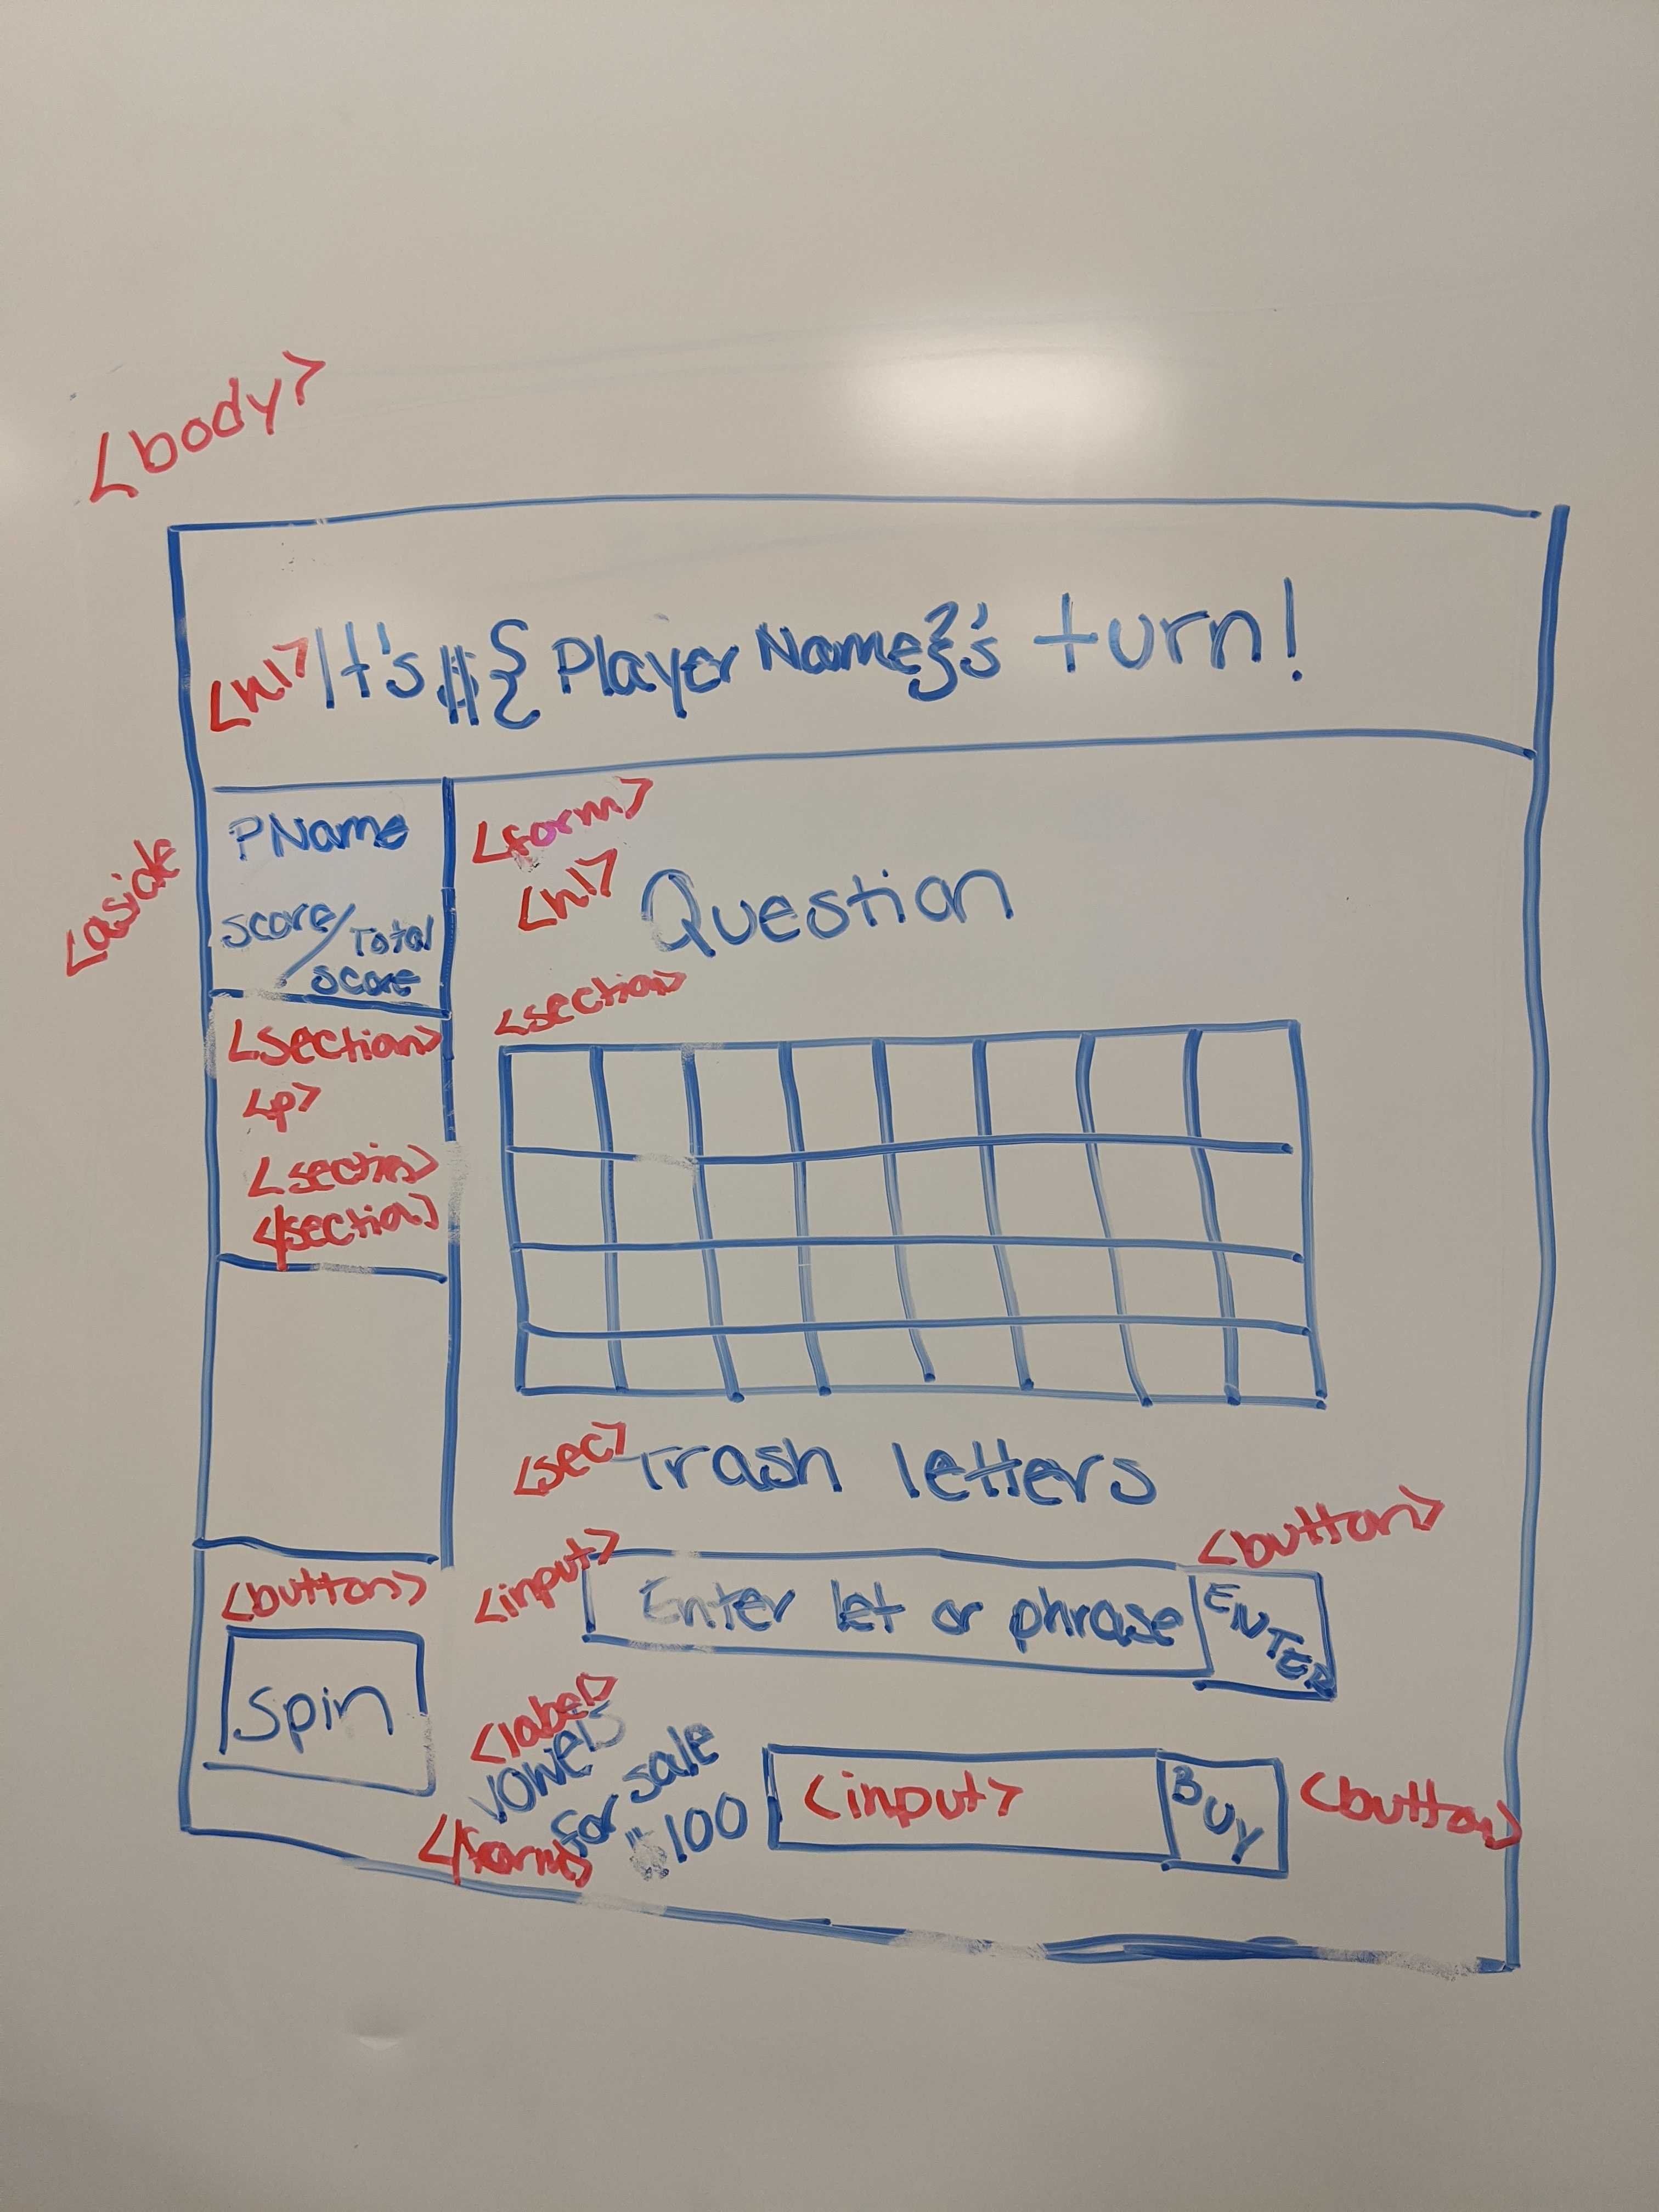 <body>
<h1> It's #{Player Name}'s turn!
<aside
PName
score/Total
score
<section>
<p>
<section>
</section>
<form>
<h1> Question
<section>
<sec> Trash letters
<button>
<input> Enter let or phrase ENTER
<button>
Spin
<label>
vowels
for sale
100
<input> BUY <button>
</form>